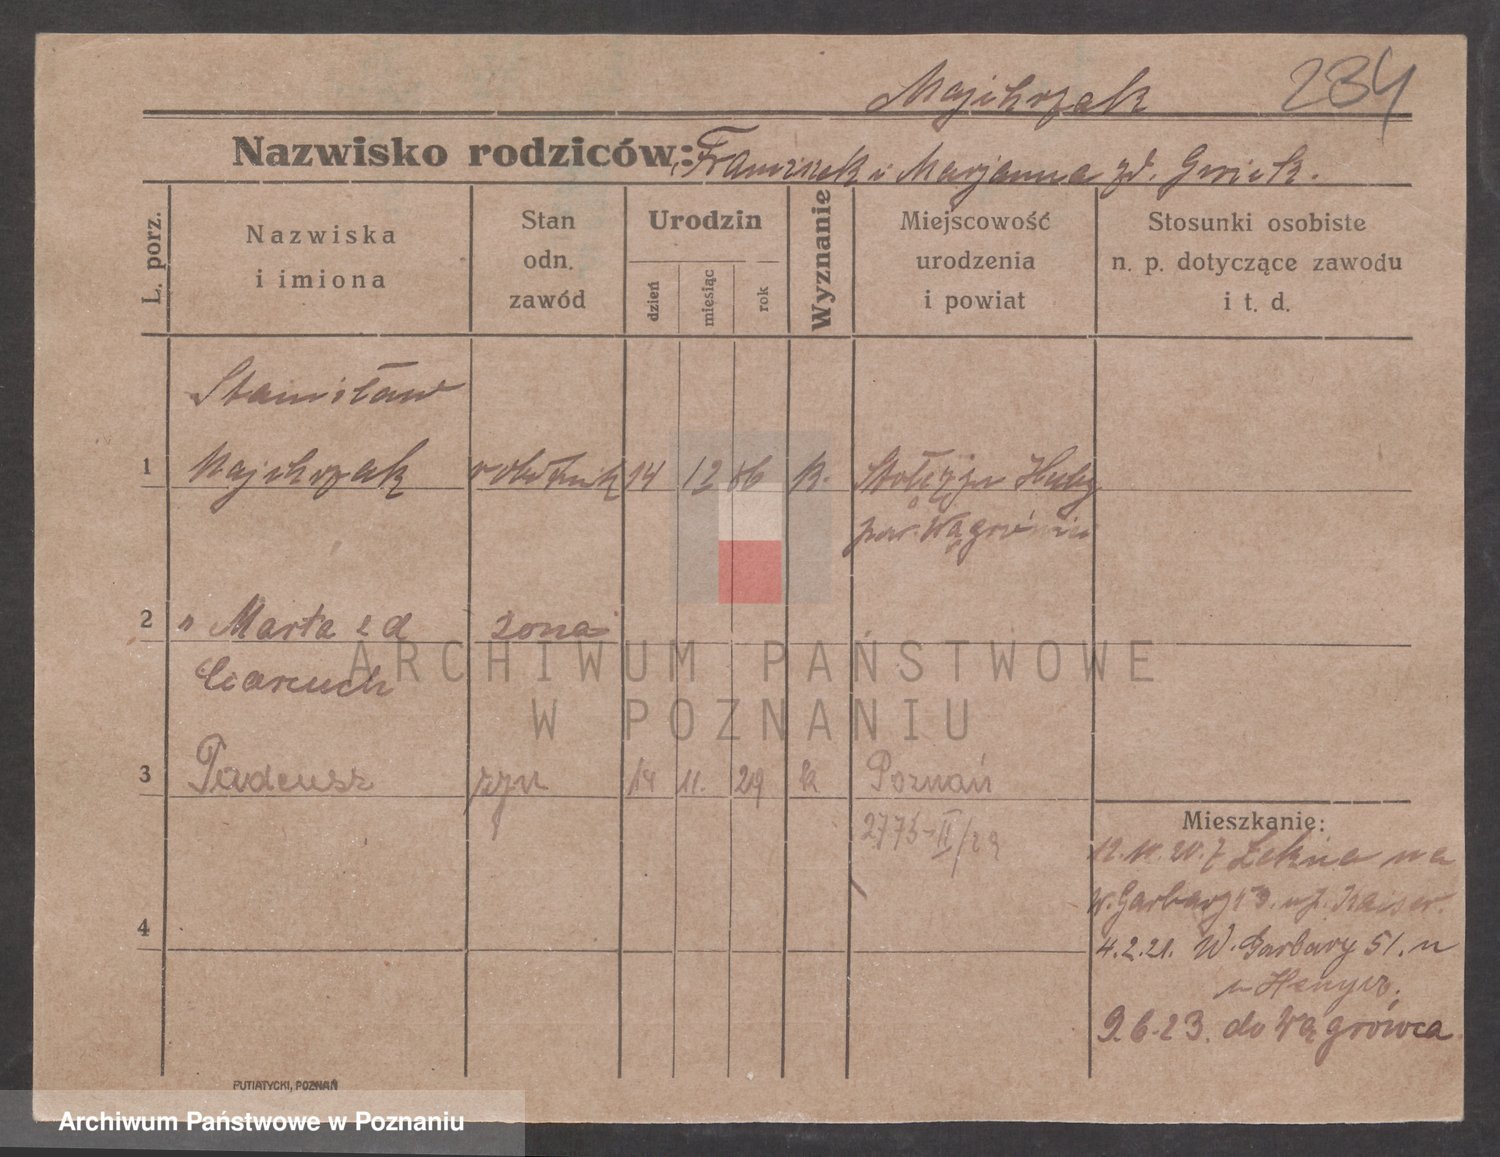 Majchrzak 234
Nazwisko rodziców: Franciszek i Marjanna zd.
L. porz.
Nazwiska
i imiona
Stan
odn.
zawód
Urodzin
dzień
miesiąc
rok
Wyznanie
Miejscowość
urodzenia
i powiat
Stosunki osobiste
n. p. dotyczące zawodu
i t. d.
Stanisław
1 Majchrzak robotnik 14 12 86 k.
pow. Wągrowiec
2 " Marta zd żona
3 Tadeusz syn 14 11. 29 k Poznań
2775-II/29
4
Mieszkanie:
Łekna na
W. Garbary
4.2.21. W. Garbary 51.
9.6.23. do Wągrówca
PUTIATYCKI, POZNAŃ
ARCHIWUM PAŃSTWOWE
W POZNANIU
Archiwum Państwowe w Poznaniu